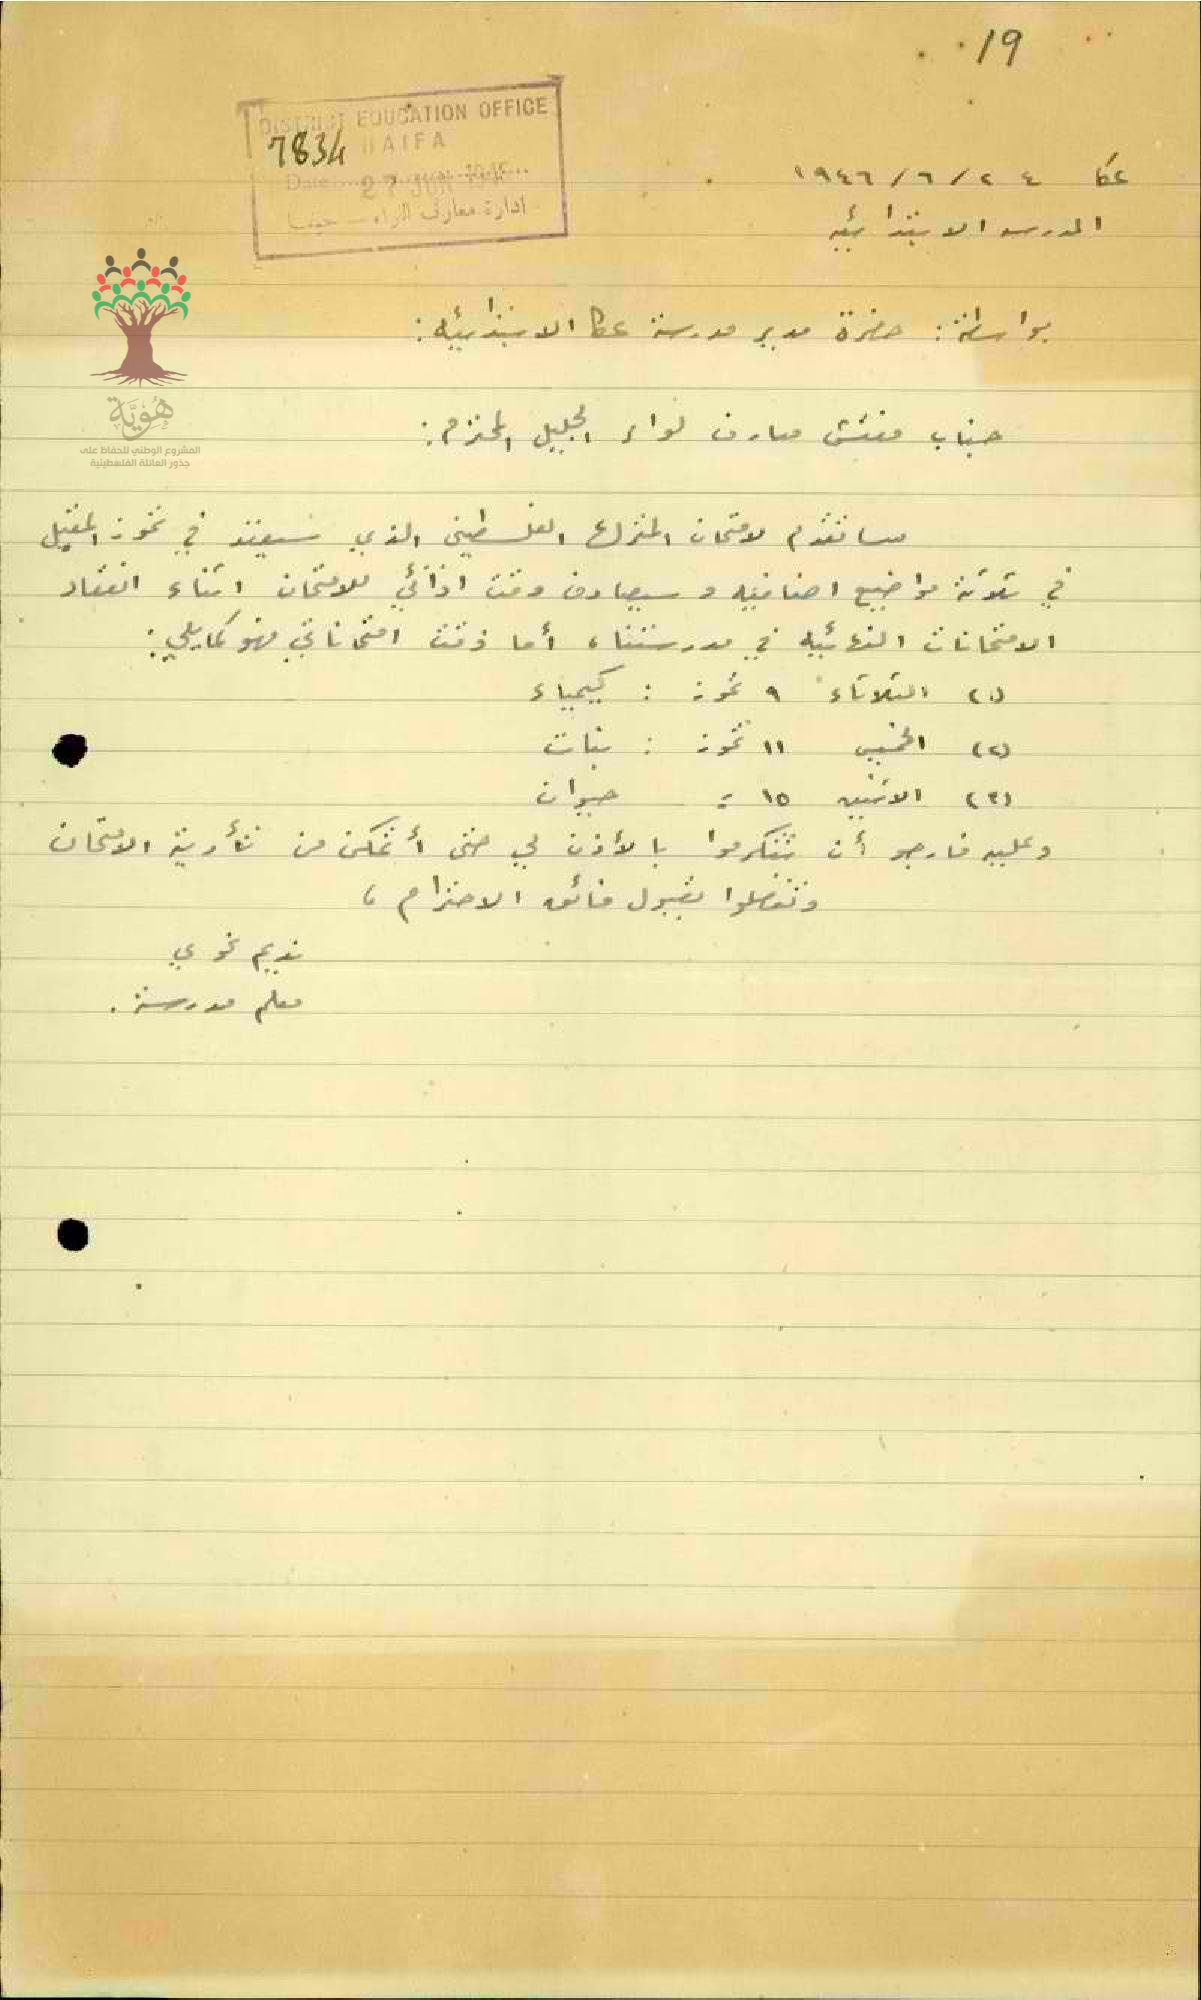 19
DISTRICT EDUCATION OFFICE
HAIFA
7834
Date 27 JUN 1946
ادارة معارف اللواء – حيفا
عكا ٢٤/٦/١٩٤٦
المدرسه الابتدائيه
هُوِيَّة
المشروع الوطني للحفاظ على
جذور العائلة الفلسطينية
بواسطة: حضرة مدير مدرسة عكا الابتدائيه:
جناب مفتش معارف لواء الجليل المحترم:
سأتقدم لامتحان المترك الفلسطيني الذي سيعقد في تموز المقبل
في ثلاثة مواضيع اضافيه وسيصادف وقت ادائي للامتحان اثناء انعقاد
الامتحانات النهائيه في مدرستنا، أما وقت امتحاناتي فهو كما يلي:
(١) الثلاثاء ٩ تموز : كيمياء
(٢) الخميس ١١ تموز : نبات
(٣) الاثنين ١٥ = حيوان
وعليه فارجو أن تتكرموا بالأذن لي حتى أتمكن من تأدية الامتحان
وتفضلوا بقبول فائق الاحترام ،
نديم خوري
معلم مدرسة .